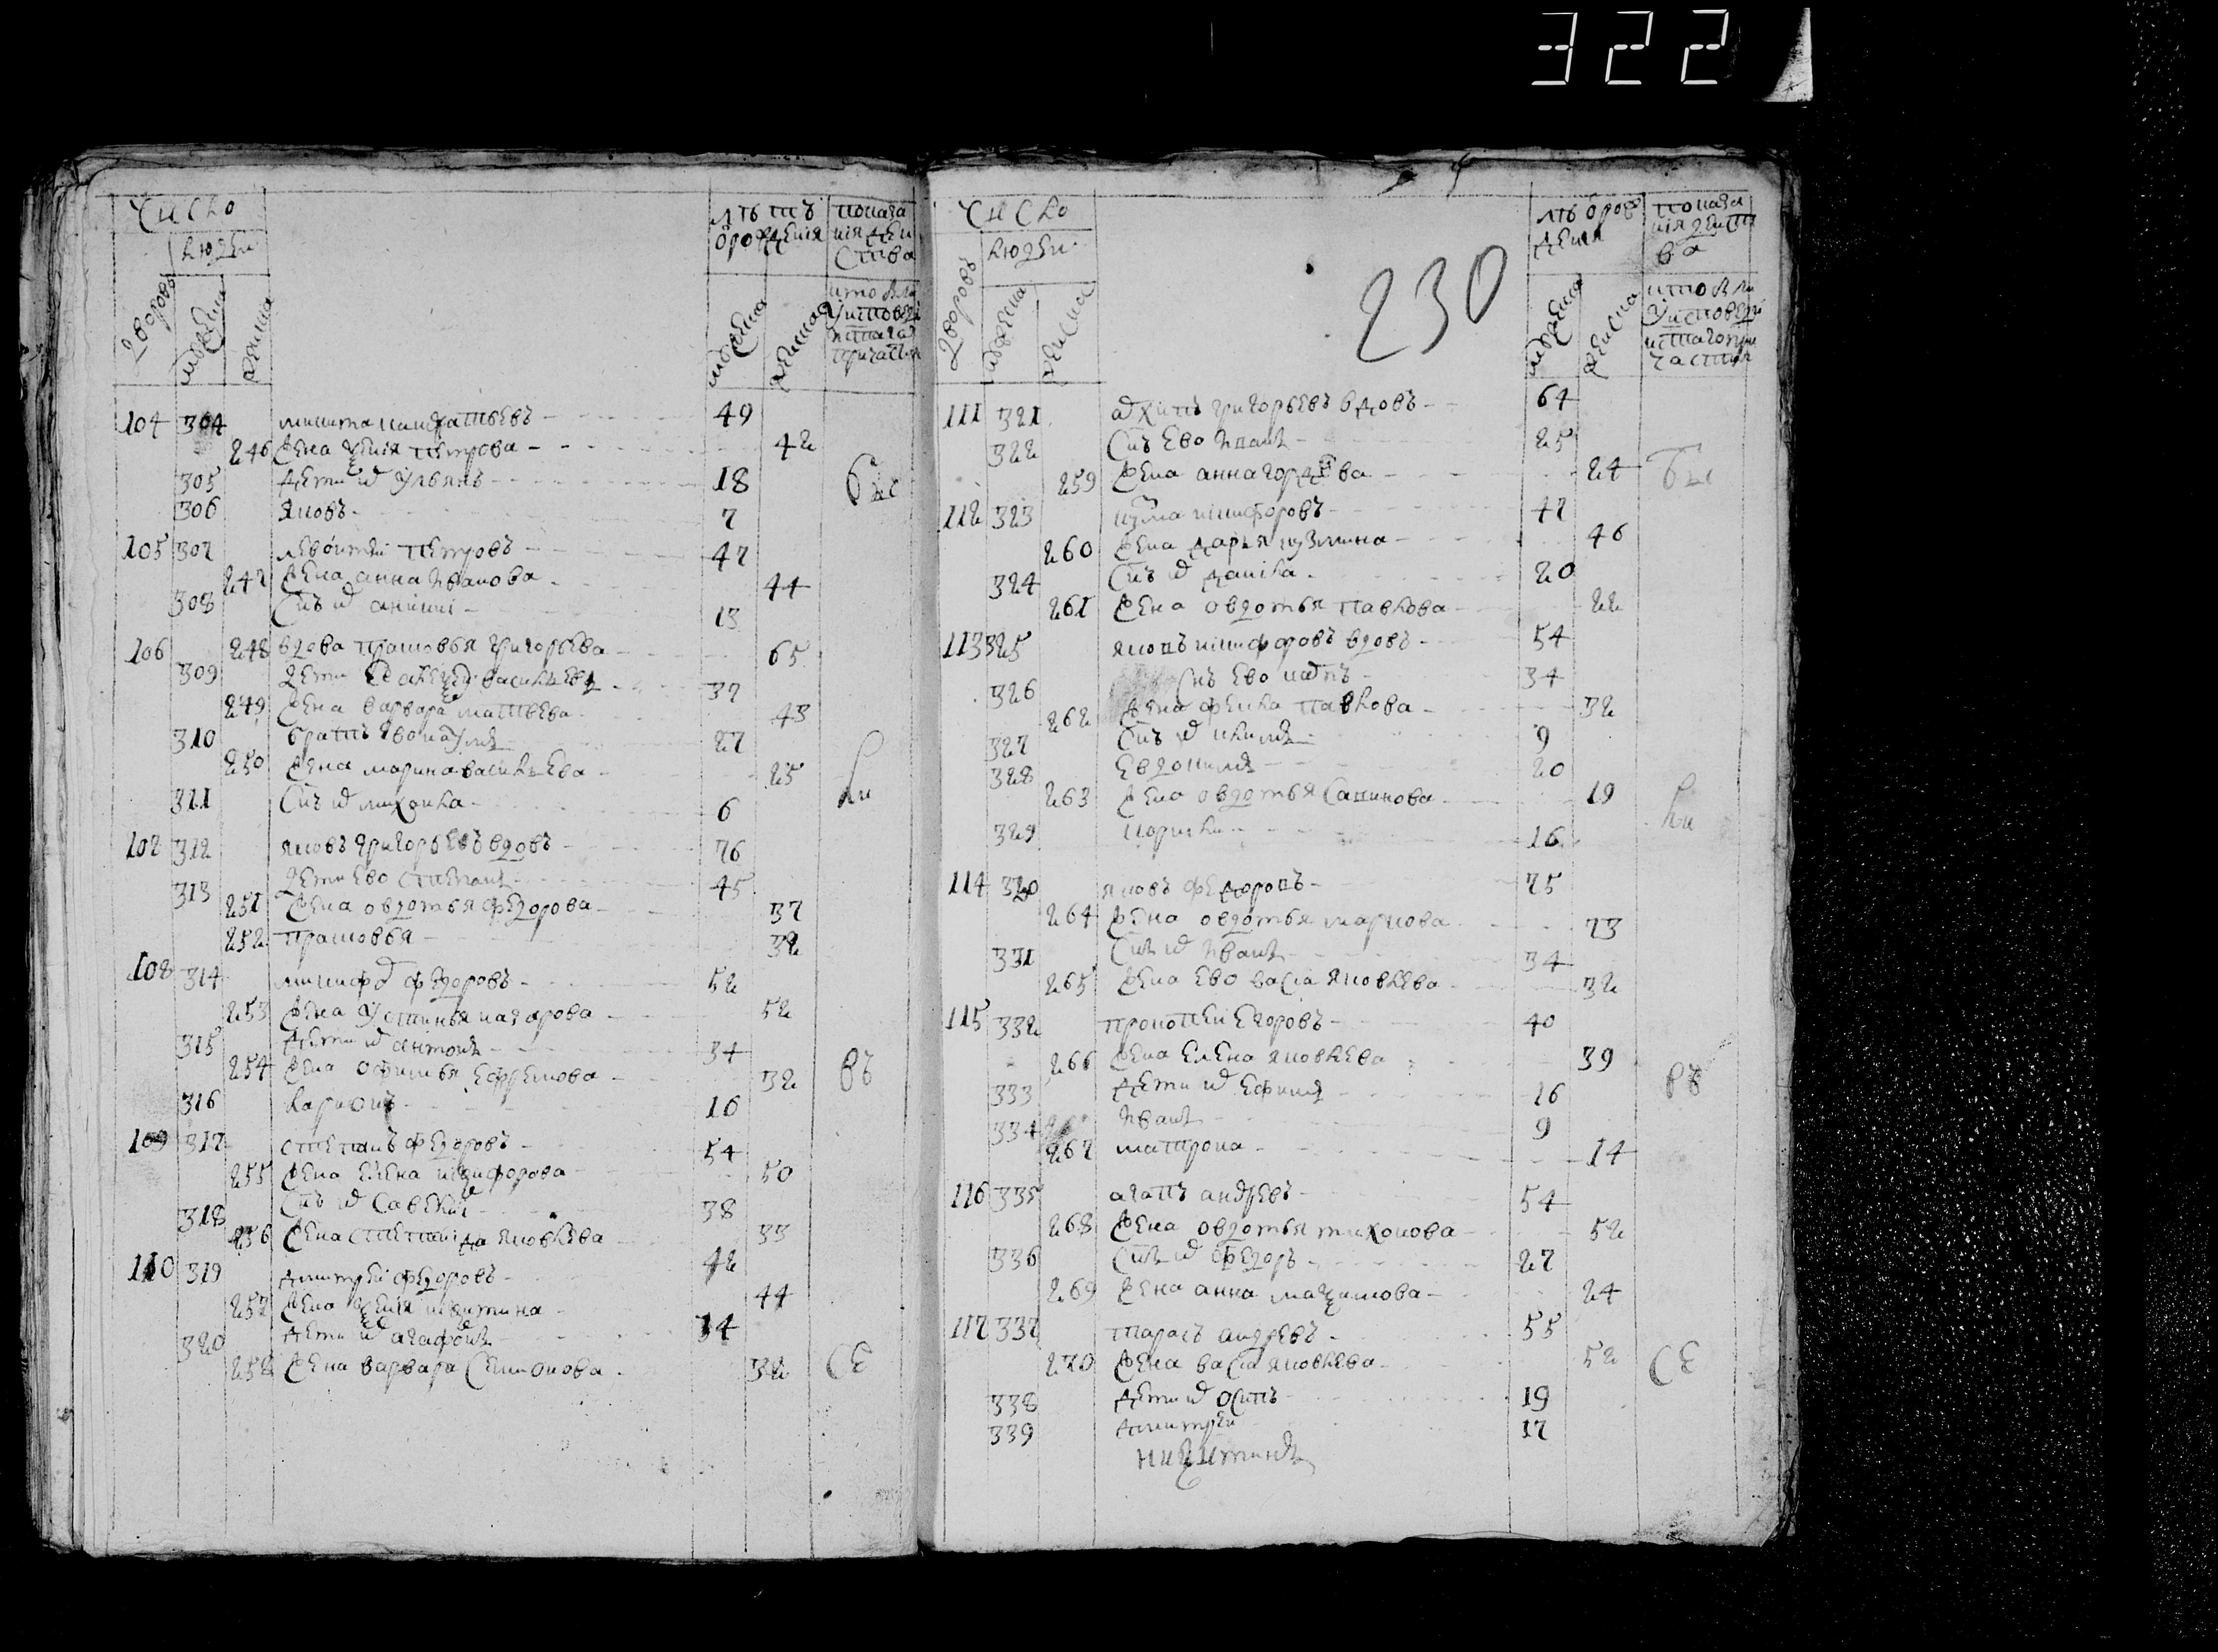 322
Число
людеи
дворовъ
мужеска
женска
лѣтъ
от рожденія
мужеска
женска
показа
нія дѣи
ства
кто былъ
у исповеди
и с҃таго
причастія
104 304 никита кондратьевъ 49
246 жена ѯенія петрова 42
305 дети их ульянъ 18
306 яковъ 7
105 307 левонтеи петровъ 47
247 жена анна иванова 44
308 сн҃ъ их
13
106 248 вдова прасковья григорьева 65
309 дети алеѯеи васильевъ 37
249 жена варвара матвеева 43
310 братъ ево наумъ 27
250 жена марина васильева 25
311 сн҃ъ их михаила 6
107 312 яковъ григорьевъ вдовъ 76
313 дети ево степанъ 45
251 жена овдотья федорова 37
252 прасковья 32
108 314 федоровъ 52
253 жена устинья назарова 52
315 дети их антонъ 34
254 жена офимья ефремова 32
316 ларионъ 16
109 317 степанъ федоровъ 54
255 жена елена никифорова 50
318 сн҃ъ их савелеи 38
256 жена степанида яковлева 33
110 319 дмитреи федоровъ 42
257 жена ѯенія никитина 44
320 дети их агафонъ 34
258 жена варвара семионова 32
бы
ли
въ
се
Число
людеи
дворовъ
мужеска
женска
лѣ от рож
денія
мужеска
женска
показа
нія деист
ва
кто былъ
у исповеди
и с҃таго при
частія
230
111 321 архипъ григорьевъ вдовъ 64
322 сн҃ъ ево иванъ 25
259 жена анна гордѣева 24
112 323 кузма никифоровъ 47
260 жена дарья кузмина 46
324 сн҃ъ их данила 20
261 жена овдотья павлова 22
113 325 яковъ никифоровъ вдовъ 54
326 сн҃ъ ево карпъ 34
262 жена фекла павлова 32
327 сн҃ъ их климъ 9
328 евдокимъ 20
263 жена овдотья савинова 19
329 корнили 16
114 330 яковъ федоровъ 75
264 жена овдотья маркова 73
331 сн҃ъ их иванъ 34
265 жена ево васса яковлева 32
115 332 прокопеи егоровъ 40
266 жена елена яковлева 39
333 дети их ефимъ 16
334 иванъ 9
267 матрона 14
116 335 агапъ андревъ 54
268 жена овдотья тихонова 52
336 сн҃ъ их федоръ 27
269 жена анна маѯимова 24
117 337 тарасъ андревъ 55
270 жена васса яковлева 52
338 дети их осипъ 19
339 дмитреи 17
никитинъ
бы
ли
въ
се